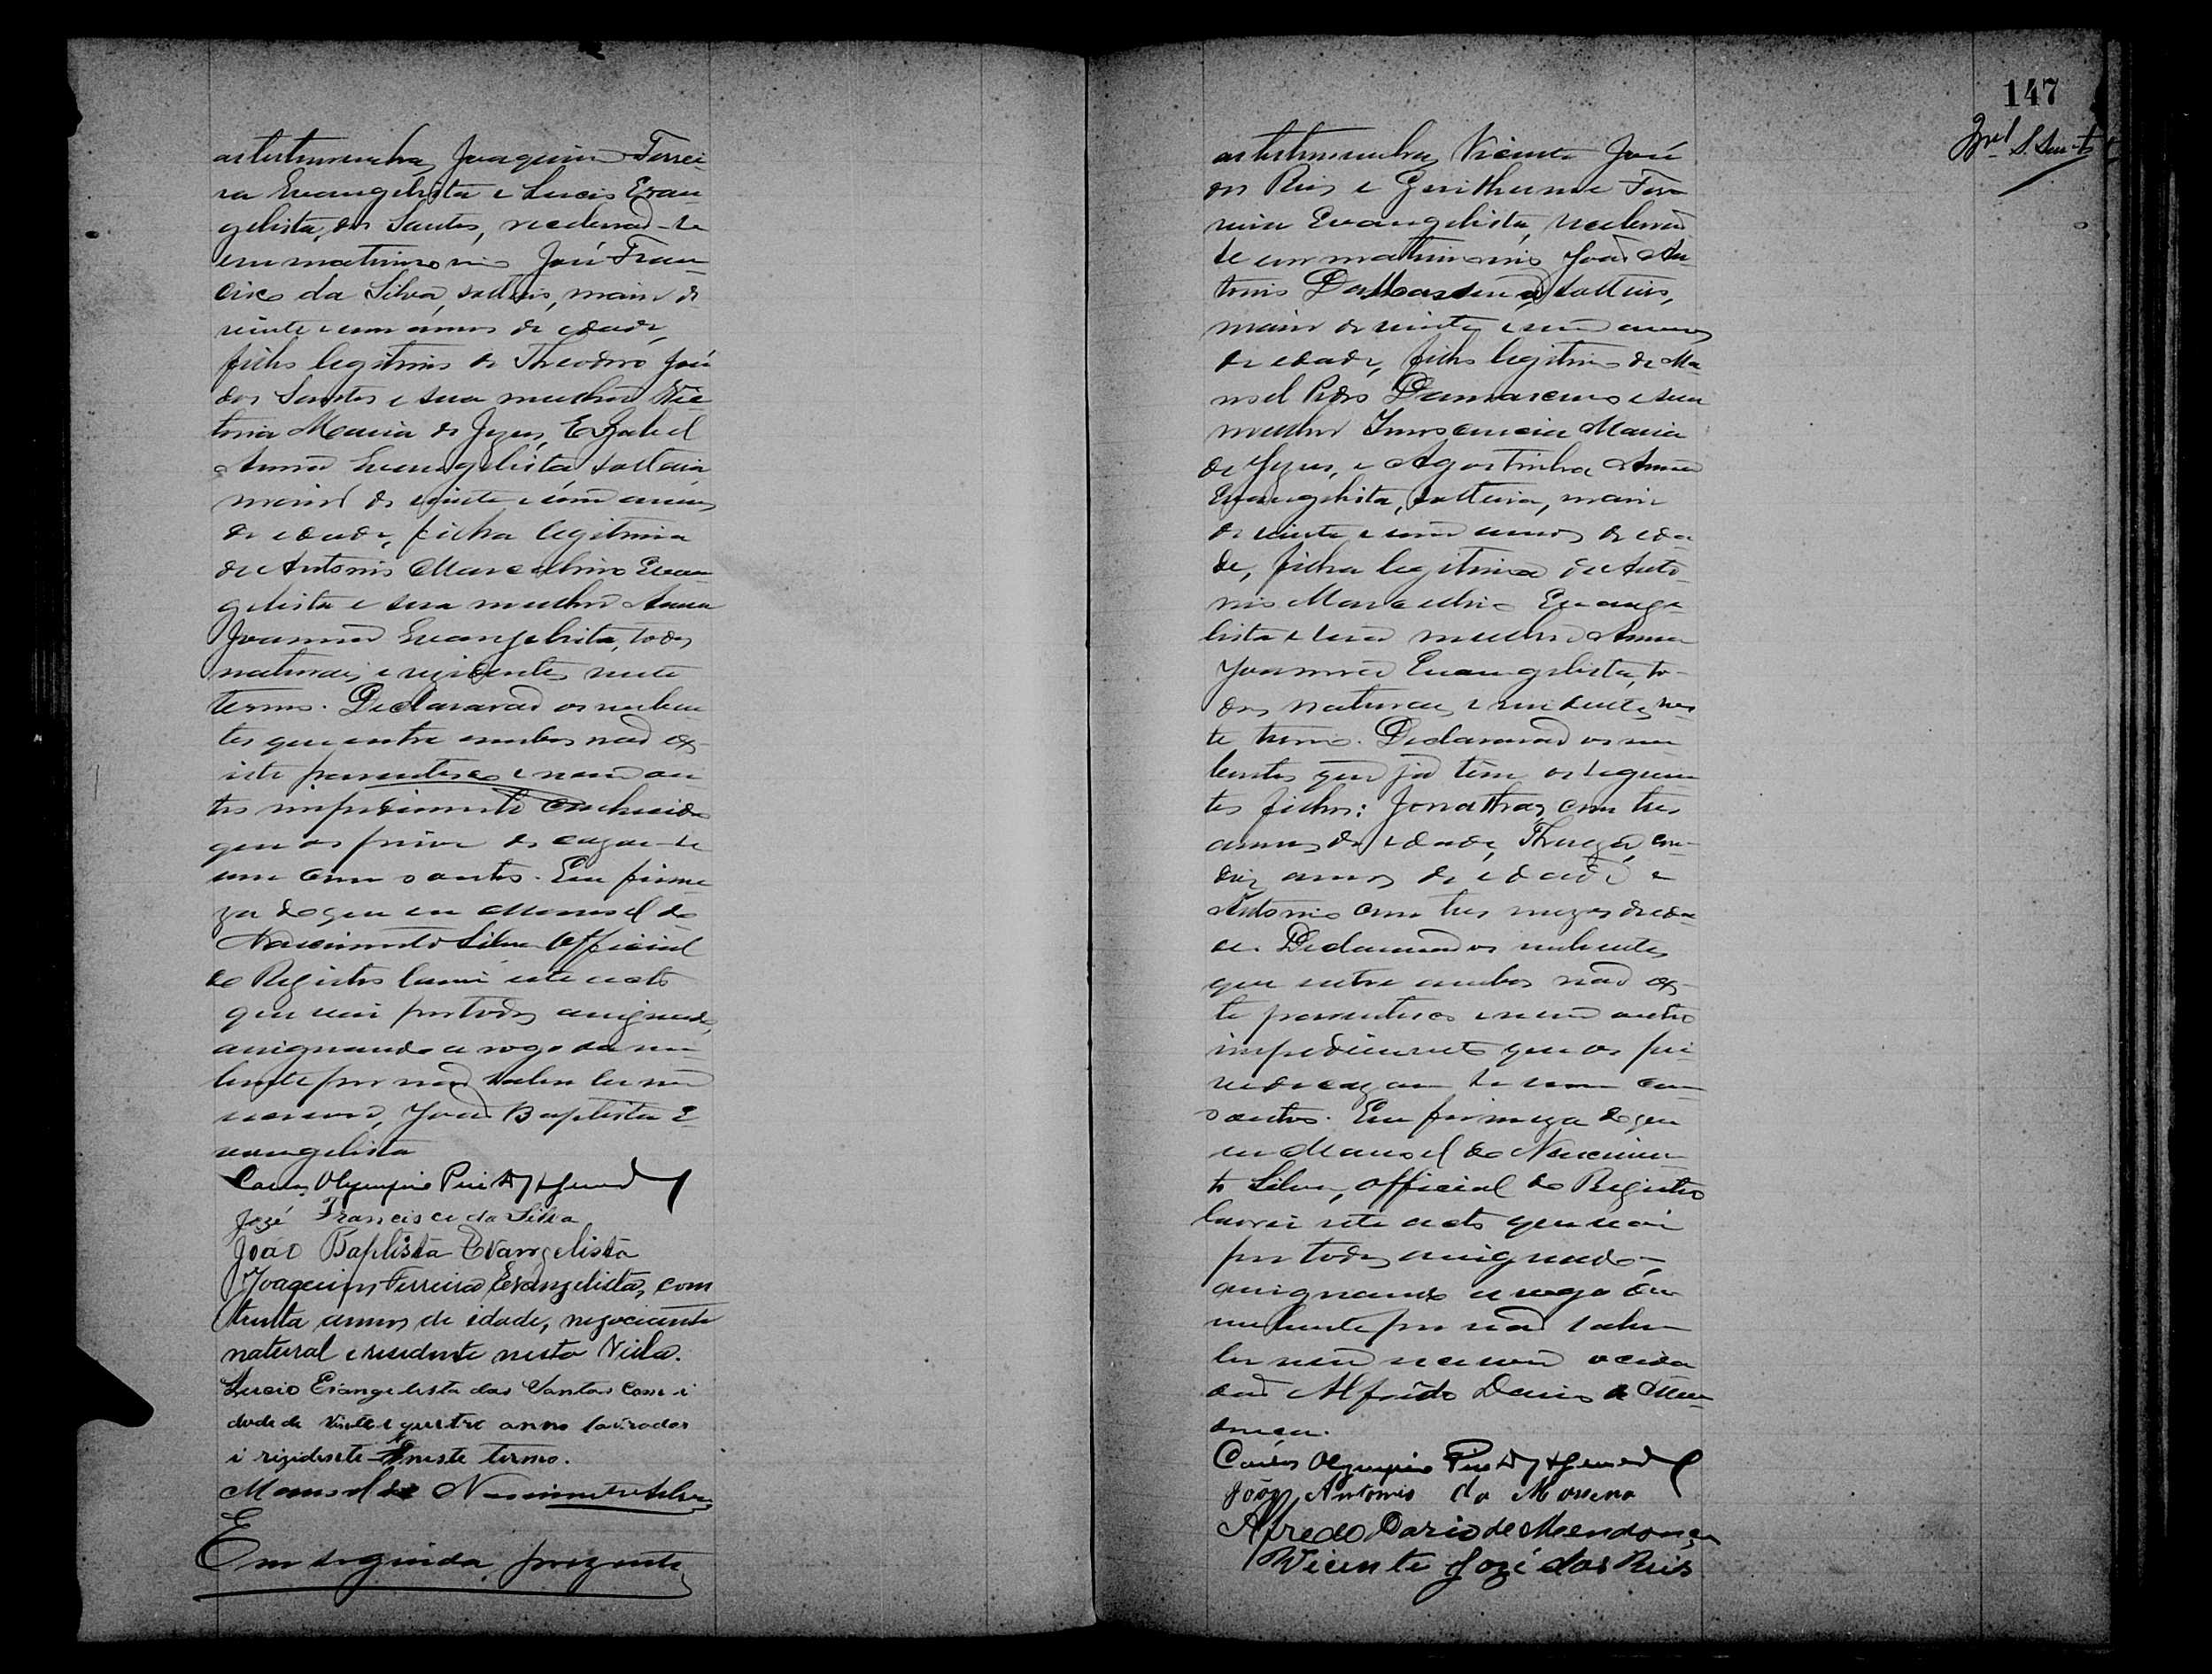 as testemunhas, Joaquim Ferrei-
ra Evangelista e Lucio Evan-
gelista dos Santos, receberaõ-se
em matrimonio José Fran-
cisco da Silva, solteiro, maior de
vinte e um annos de edade,
filho legitimo de Theodoro José
dos Santos e sua mulher Vic-
toria Maria de Jezus, e Izabel
Anna Evangelista solteira
maior de vinte e um annos
de edade, filha legitima
de Antonio Marcelino Evan-
gelista e sua mulher Anna
Joanna Evangelista, todos
naturaes e rezidentes neste
termo. Declararaõ os nuben-
tes que entre ambos naõ ex-
iste parentesco e nem ou-
tro impedimento conhecido
que os prive de cazar-se
um com o outro. Em firme-
za do que eu Manoel do
Nascimento Silva Official
do Registro lavrei este acto
que vai por todos assignado,
assignando a rogo da nu-
bente por naõ saber ler nem
escrever, Joaõ Baptista E-
vangelista
Carlos Olympio
José Francisco da Silva
João Baptista Evangelista
Joaquim Ferreira Evangelista, com
trinta annos de idade, negociante
natural e residente nesta Villa.
Lucio Evangelista dos Santos com i
dade de vinte e quatro anno lavrador
i rizidente neste termo.
Manoel do Nascimento Silva
Em seguida, prezente
147
as testemunhas Vicente José
dos Reis e Guilherme Fer-
reira Evangelista, receberaõ
se em matrimonio Joaõ An-
tonio solteiro,
maior de vinte e um annos
de edade, filho legitimo de Ma-
noel Pedro Damasceno e sua
mulher Innocencia Maria
de Jezus, e Agostinha Anna
Evangelista, solteira, maior
de vinte e um annos de eda-
de, filha legitima de Anto-
nio Marcelino Evange-
lista e sua mulher Anna
Joanna Evangelista, to-
dos naturaes e rezidentes nes-
te termo. Declararaõ os nu-
bentes que já têm os seguin-
tes filhos: Jonathas, com tres
annos de edade, Thereza, com
dois annos de edade e
Antonio com tres mezes de eda-
de. Declararaõ os nubentes
que entre ambos naõ exis-
te parentesco e nem outro
impedimento que os pri-
ve de cazar-se um com
o outro. Em firmeza do que
eu Manoel do Nascimen-
to Silva, Official do Registro
lavrei este acto que vai
por todos assignado,
assignando a rogo da
nubente por naõ saber
ler nem escrever o cida-
daõ Alfredo Dario de Men-
donça.
Carlos Olympio
João Antonio da
Alfredo Dario de Mendonça
Vicente José dos Reis